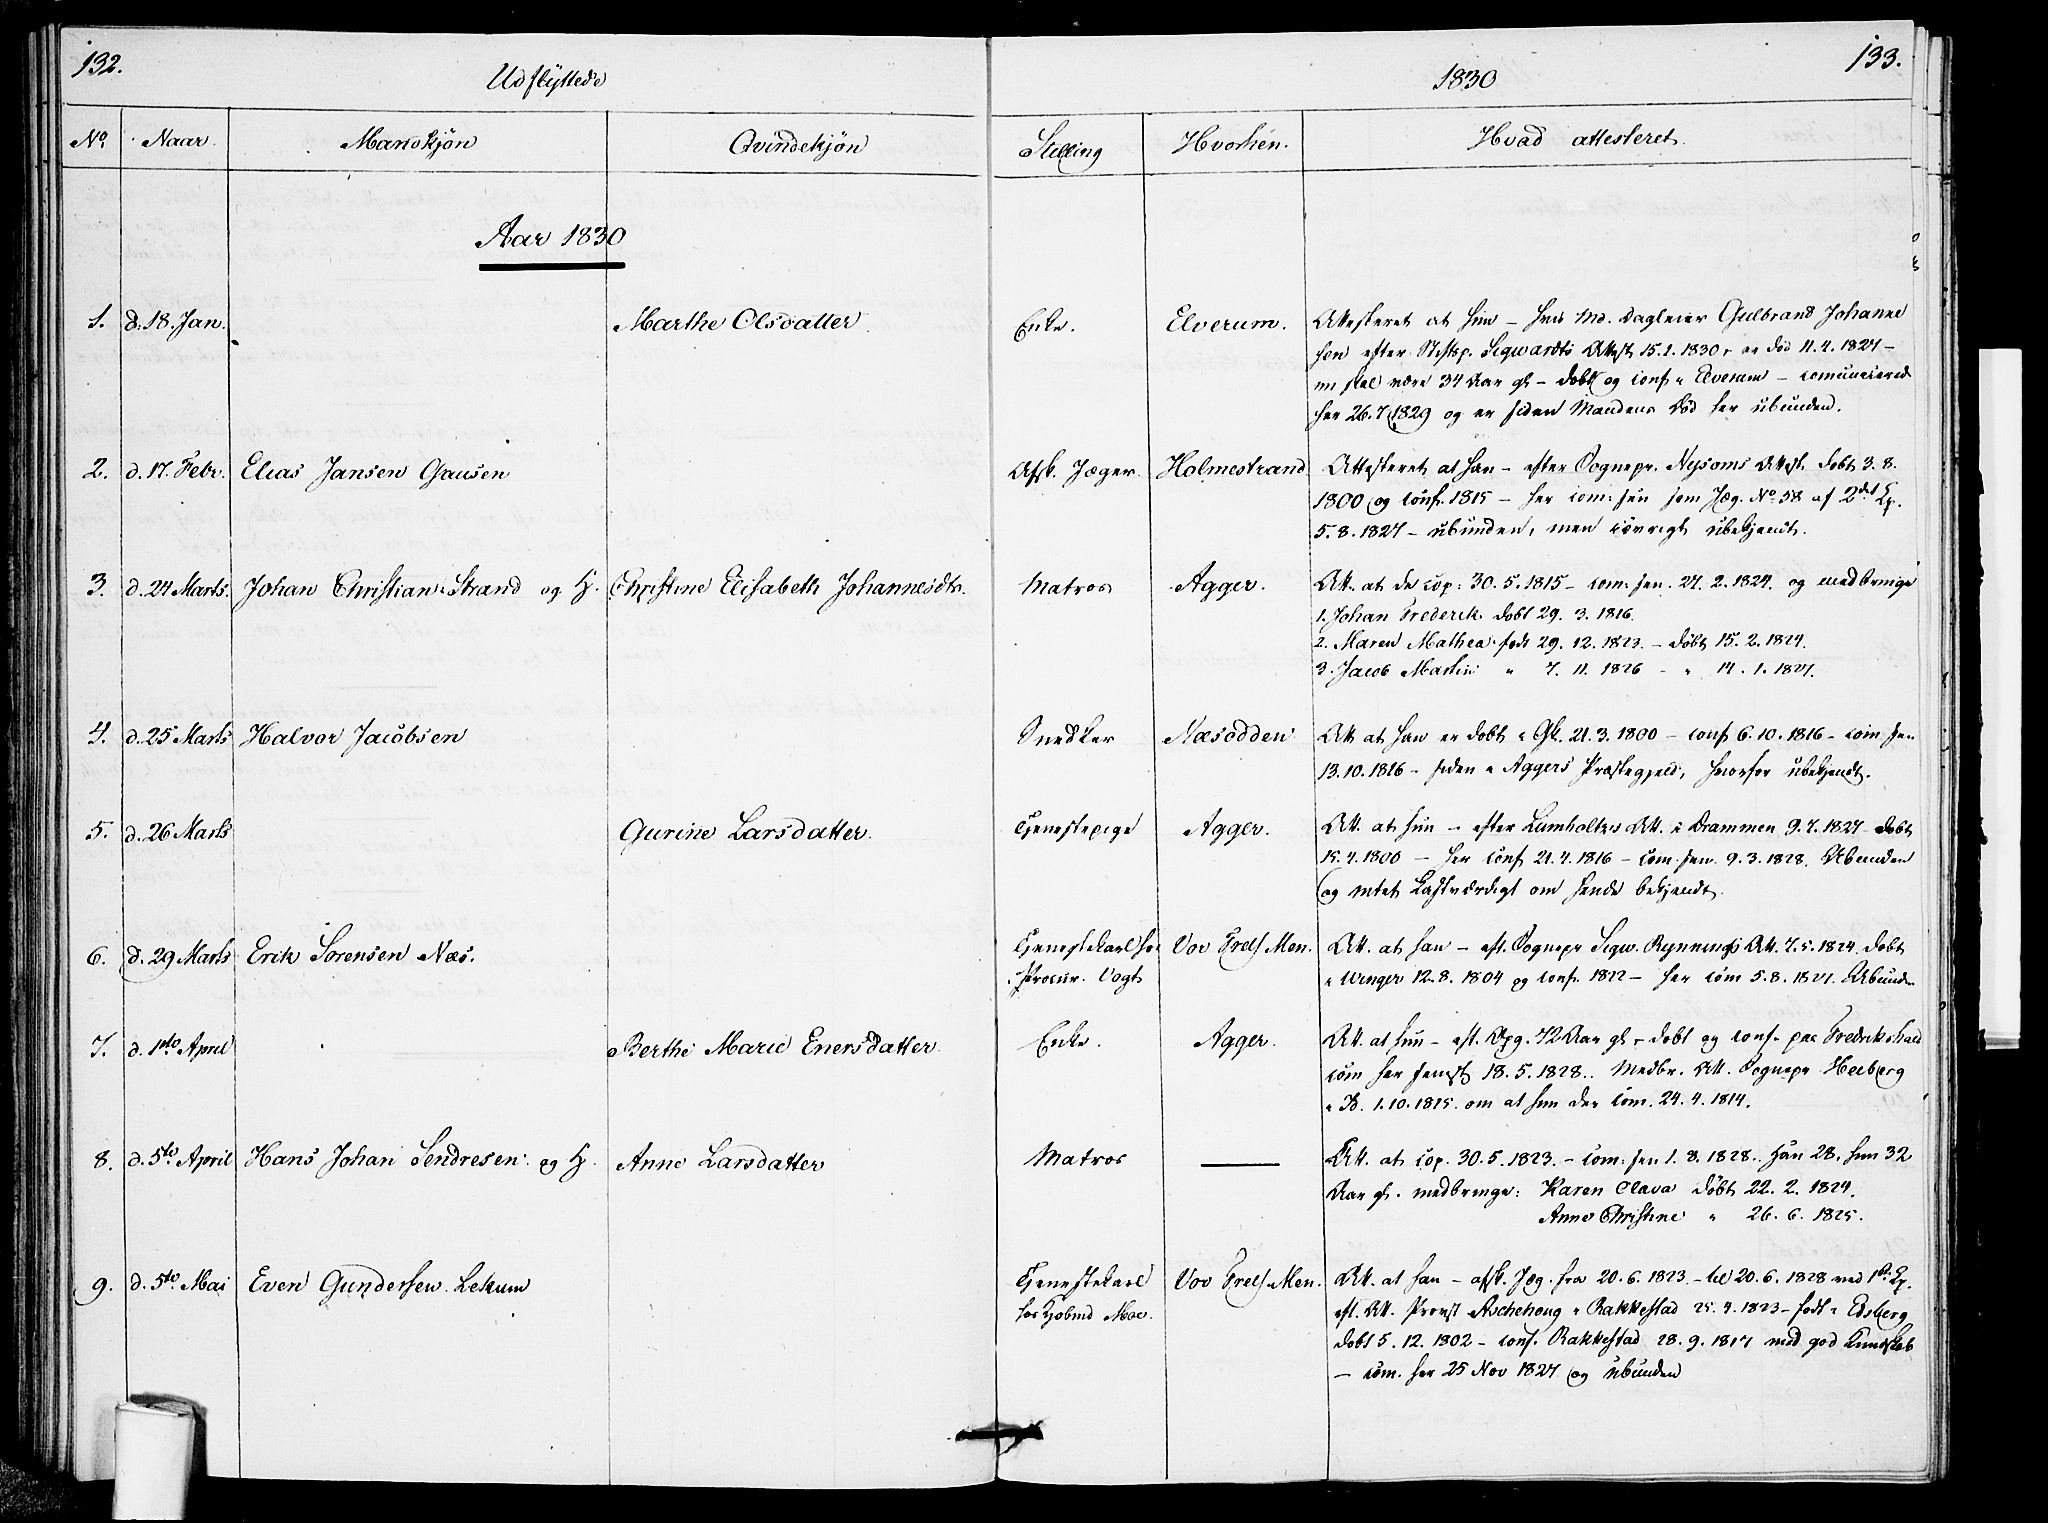 132.
Udflyttede
No. Naar. Mandkjøn Qvindekjøn
Aar 1830
1. d. 18. Jan. Marthe Olsdatter.
2. d. 17. Febr. Elias Jansen Gausen
3. d. 24 Marts. Johan Christian Strand og H. Christine Elisabeth Johannesdtr.
4. d. 25 Marts Halvor Jacobsen
5. d. 26 Marts Gurine Larsdatter.
6. d. 29 Marts Erik Sørensen Næs.
7. d. 1ste April Berthe Marie Enersdatter.
8. d. 5te April Hans Johan Sendresen og H. Anne Larsdatter
9. d. 5te Mai Even Gundersen Lekum
133.
1830
Stilling Hvorhen. Hvad attesteret.
Enke. Elverum. Attesteret at hun – hvis Md. Dagleier Gulbrand Johanne
sen efter Stiftsp. Sigwardts Attest 15.1.1830, er død 11.4.1827 –
skal være 34 Aar gl – døbt og conf i Elverum – comunicerede
her 26.7.1829 og er siden Mandens Død her ubunden.
Afsk. Jæger. Holmestrand Attesteret at han – efter Sognepr. Nysoms Attest. døbt 3.8.
1800 og conf. 1815 – her com: sen som Jæg. No. 58 af 2det Cp.
5.8.1827 – ubunden, men iøvrigt ubekjendt.
Matros Agger. Att. at de cop: 30.5.1815 – com: sen. 27.2.1824. og medbringe
1. Johan Frederik døbt 29.3.1816.
2. Maren Mathea. født 29.12.1823. – døbt 15.2.1824.
3. Jacob Martin " 7.11.1826 – " 14.1.1827.
Snedker Næsodden Att at han er døbt i Gl. 21.3.1800 – conf 6.10.1816 – com sen
13.10.1816 – siden i Aggers Præstegjeld, hvorfor ubekjendt.
Tjenestepige Agger. Att. at hun – efter Lumholtzs Att. i Drammen 9.7.1827 døbt
15.4.1800 – her conf 21.4.1816 – com. sen. 9.3.1828. Ubunden
og intet Lastværdigt om hende bekjendt.
Tjenestekarl hos Vor Frels. Men. Att. at han – eft. Sognepr Sigw. Rynnings Att. 7.5.1824. døbt
Procur. Vogt i Vinger 12.8.1804 og conf. 1822 – her com 5.8.1827. Ubunden
Enke. Agger. Att. at hun – eft. Opg. 72 Aar gl – døbt og conf. paa Fredrikshald
com her senest 18.5.1828. Medbr. Att. Sognepr Heiberg
1.10.1815. om at hun der com. 24.4.1814.
Matros Att. at cop. 30.5.1823. – com: sen 1.8.1828. han 28, hun 32
Aar gl. medbringe: Karen Olava døbt 22.2.1824.
Anne Christine " 26.6.1825.
Tjenestekarl Vor Frels. Men. Att. at han – afsk. Jæg. fra 20.6.1823. – til 20.6.1828 ved 1ste Cp.
hos Kjøbmd Moe. eft. Att. Provst Aschehoug i Rakkestad 25.4.1823 – født i Edsberg
døbt 5.12.1802 – conf. Rakkestad 28.9.1817 med god Kundskab
– com. her 25 Nov 1827 og ubunden